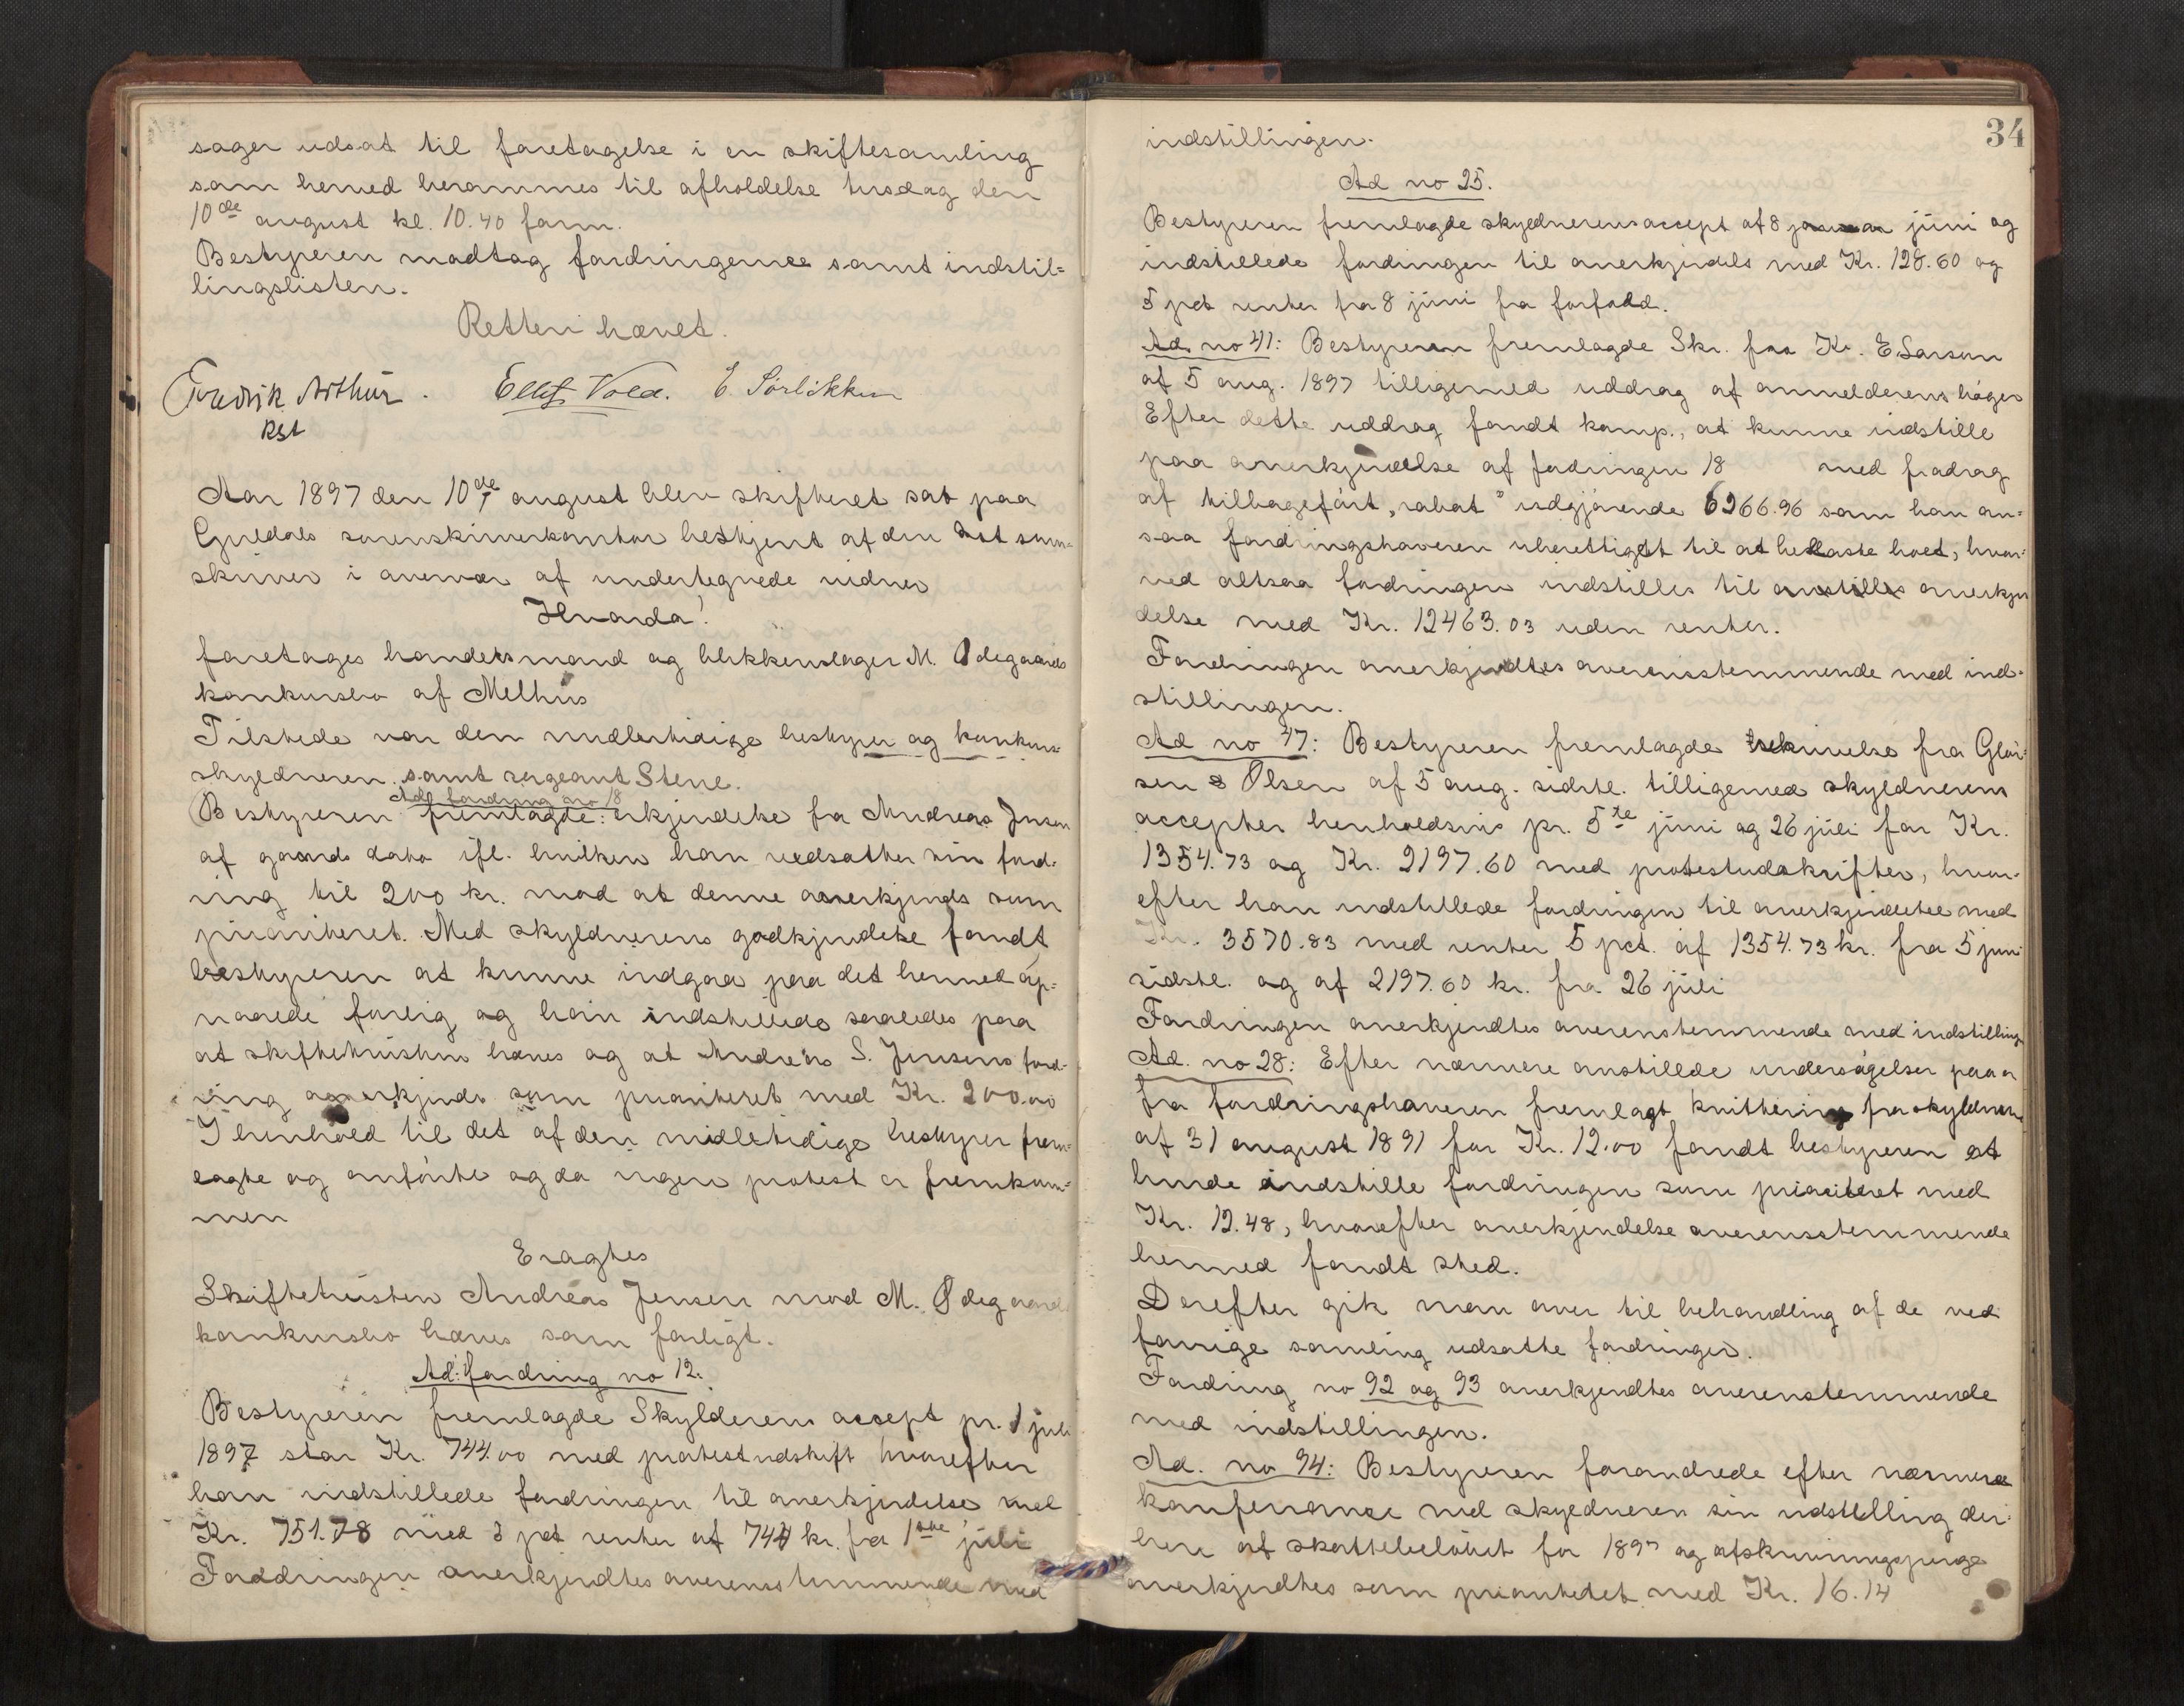 sager udsat til foretagelse i en skiftesamling
som herved berammes til afholdelse tirsdag den
10de august kl. 10.40 form.
Bestyreren modtog fordringerne samt indstil=
lingslisten.
Retten hævet.
Fredrik Arthur. Ellef Vold. E. Sørlikken
Kst
Aar 1897 den 10de august blev skifteret sat paa
Guldals sorenskriverkontor betjent af den kst soren=
skriver i overvær af undertegnede vidner
Hvorda!
foretages handelsmand og blikkenslager M. Ødegaards
konkursbo af Melhus
Tilstede var den midlertidige bestyrer og konkurs=
skyldneren samt sergeant Stene.
Ad fordring no 18
Bestyreren fremlagde: erkjendelse fra Andreas Jensen
af gaards dato ifl. hvilken han nedsætter sin ford=
ring til 200 kr. mod at denne anerkjendes som
prioriteret. Med skyldnerens godkjendelse fandt
bestyreren at kunne indgaa paa det herved op=
naaede forlig og han indstillede saaledes paa
at skiftetvisten hæves og at Andreas S. Jensens ford=
ring anerkjendes som prioriteret med Kr. 200.00
I henhold til det af den midlertidige bestyrer frem=
lagte og anførte og da ingen protest er fremkom=
men
Eragtes
Skiftetvisten Andreas Jensen mod M. Ødegaards
konkursbo hæves som forligt.
Ad: fordring no 12.
Bestyreren fremlagde Skylderens accept pr. 1 juli
1897 stor Kr. 744.00 med protestudskift hvorefter
han indstillede fordringen til anerkjendelse med
Kr. 751.78 med 5 pct renter af 744 kr. fra 1ste juli
Forddringen anerkjendtes overensstemmende med
34
indstillingen.
Ad no 25.
Bestyreren fremlagde skyldnerens accept af 8 juni og
indstillede fordringen til anerkjendels med Kr. 128.60 og
5 pct renter fra 8 juni fra forfald.
Ad no 41: Bestyreren fremlagde Skr. fra Kr. E. Larsen
af 5 aug. 1897 tilligemed uddrag af anmelderens bøger
Efter dette uddrag fandt komp., at kunne indstille
paa anerkjendelse af fordringen 18 med fradrag
af tilbageført "rabat" udgjørende 6266.96 som han an=
saa fordringshaveren uberettiget til at belaste boet, hvor=
ved altsaa fordringen indstilles til anerkjen
delse med Kr. 12463.03 uden renter.
Fordringen anerkjendtes overensstemmende med ind=
stillingen.
Ad no 47: Bestyreren fremlagde skrivelse fra
sen & Olsen af 5 aug. sidstl. tilligemed skyldnerens
accepter henholdsvis pr. 5te juni og 26 juli for Kr.
1354.73 og Kr. 2197.60 med protestudskrifter, hvor=
efter han indstillede fordringen til anerkjendelse med
Kr. 3570.83 med renter 5 pct. af 1354.73 kr. fra 5 juni
sidstl. og af 2197.60 kr. fra 26 juli
Fordringen anerkjendtes overenstemmende med indstilling
Ad. no 28: Efter nærmere anstillede undersøgelser paa
fra fordringshaveren fremlagt kvittering fra skyldneren
af 31 august 1891 for Kr. 12.00 fandt bestyreren at
burde indstille fordringen som prioriteret med
Kr. 12.48, hvorefter anerkjendelse overensstemmende
hermed fandt sted.
Derefter gik man over til behandling af de ved
forrige samling udsatte fordringer.
Fordring no 92 og 93 anerkjendtes overenstemmende
med indstillingen.
Ad. no 94: Bestyreren forandrede efter nærmere
konferance med skyldneren sin indstilling der=
hen at skattebeløbet for 1897 og afskrivningspenge
anerkjendtes som prioritetet med Kr. 16.14